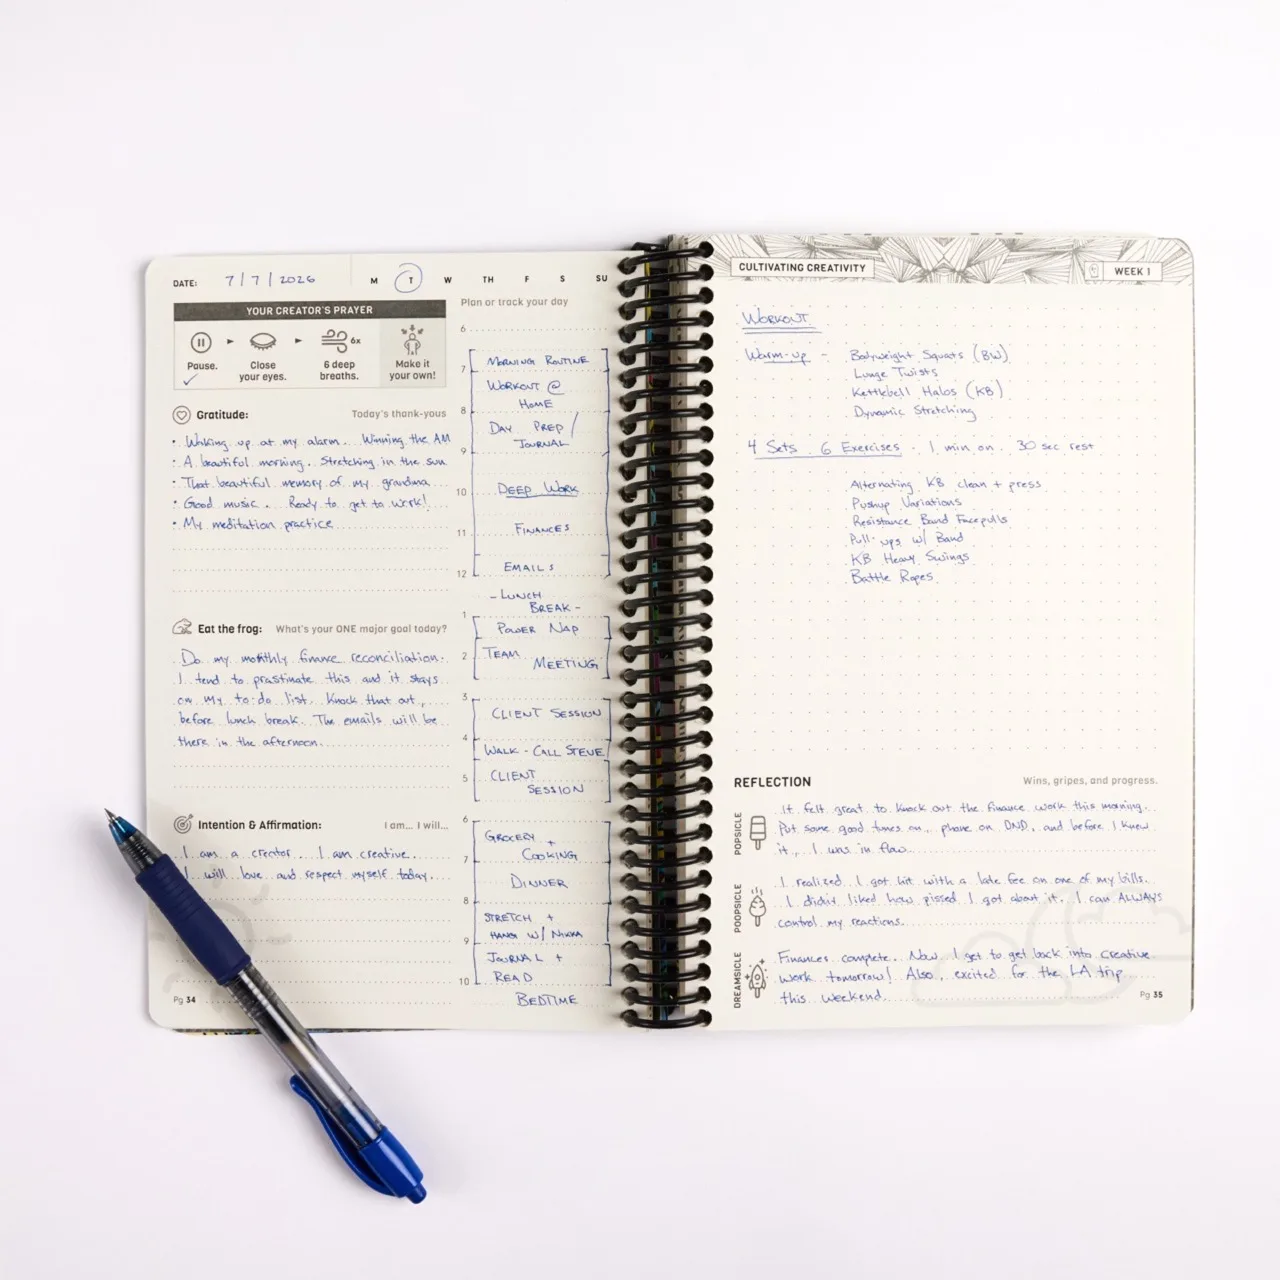 DATE: 7/7/2026 M T W TH F S SU
YOUR CREATOR'S PRAYER
6x
Pause. Close your eyes. 6 deep breaths. Make it your own!
Gratitude: Today's thank-yous
• Waking up at my alarm... Winning the AM
• A beautiful morning.. Stretching in the sun
• That beautiful memory of my grandma
• Good music.. Ready to get to work!
• My meditation practice
Eat the frog: What's your ONE major goal today?
Do my monthly finance reconciliation.
I tend to prastinate this and it stays
on my to-do list. Knock that out,
before lunch break. The emails will be
there in the afternoon.
Intention & Affirmation: I am... I will...
I am a creator... I am creative.
I will love and respect myself today.
Pg 34
Plan or track your day
6
MORNING ROUTINE
7
WORKOUT @
HOME
8
DAY PREP /
JOURNAL
9
DEEP WORK
10
FINANCES
11
EMAILS
12
- LUNCH
BREAK -
1
POWER NAP
2
TEAM
MEETING
3
CLIENT SESSION
4
WALK - CALL STEVE
5
CLIENT
SESSION
6
GROCERY +
COOKING
7
DINNER
8
STRETCH +
HANG W/
9
JOURNAL +
READ
10
BEDTIME
CULTIVATING CREATIVITY
WEEK 1
WORKOUT
Warm-up - Bodyweight Squats (BW)
Lunge Twists
Kettlebell Halos (KB)
Dynamic Stretching
4 Sets 6 Exercises - 1 min on 30 sec rest
Alternating KB clean + press
Pushup Variations
Resistance Band Facepulls
Pull-ups w/ Band
KB Heavy Swings
Battle Ropes
REFLECTION Wins, gripes, and progress.
POPSICLE
It felt great to knock out the finance work this morning.
Put some good tunes on, phone on DND, and before I knew
it, I was in flow.
POOPSICLE
I realized I got hit with a late fee on one of my bills.
I didn't liked how pissed I got about it. I can ALWAYS
control my reactions.
DREAMSICLE
Finances complete. Now I get to get back into creative
work tomorrow! Also, excited for the LA trip
this weekend.
Pg 35